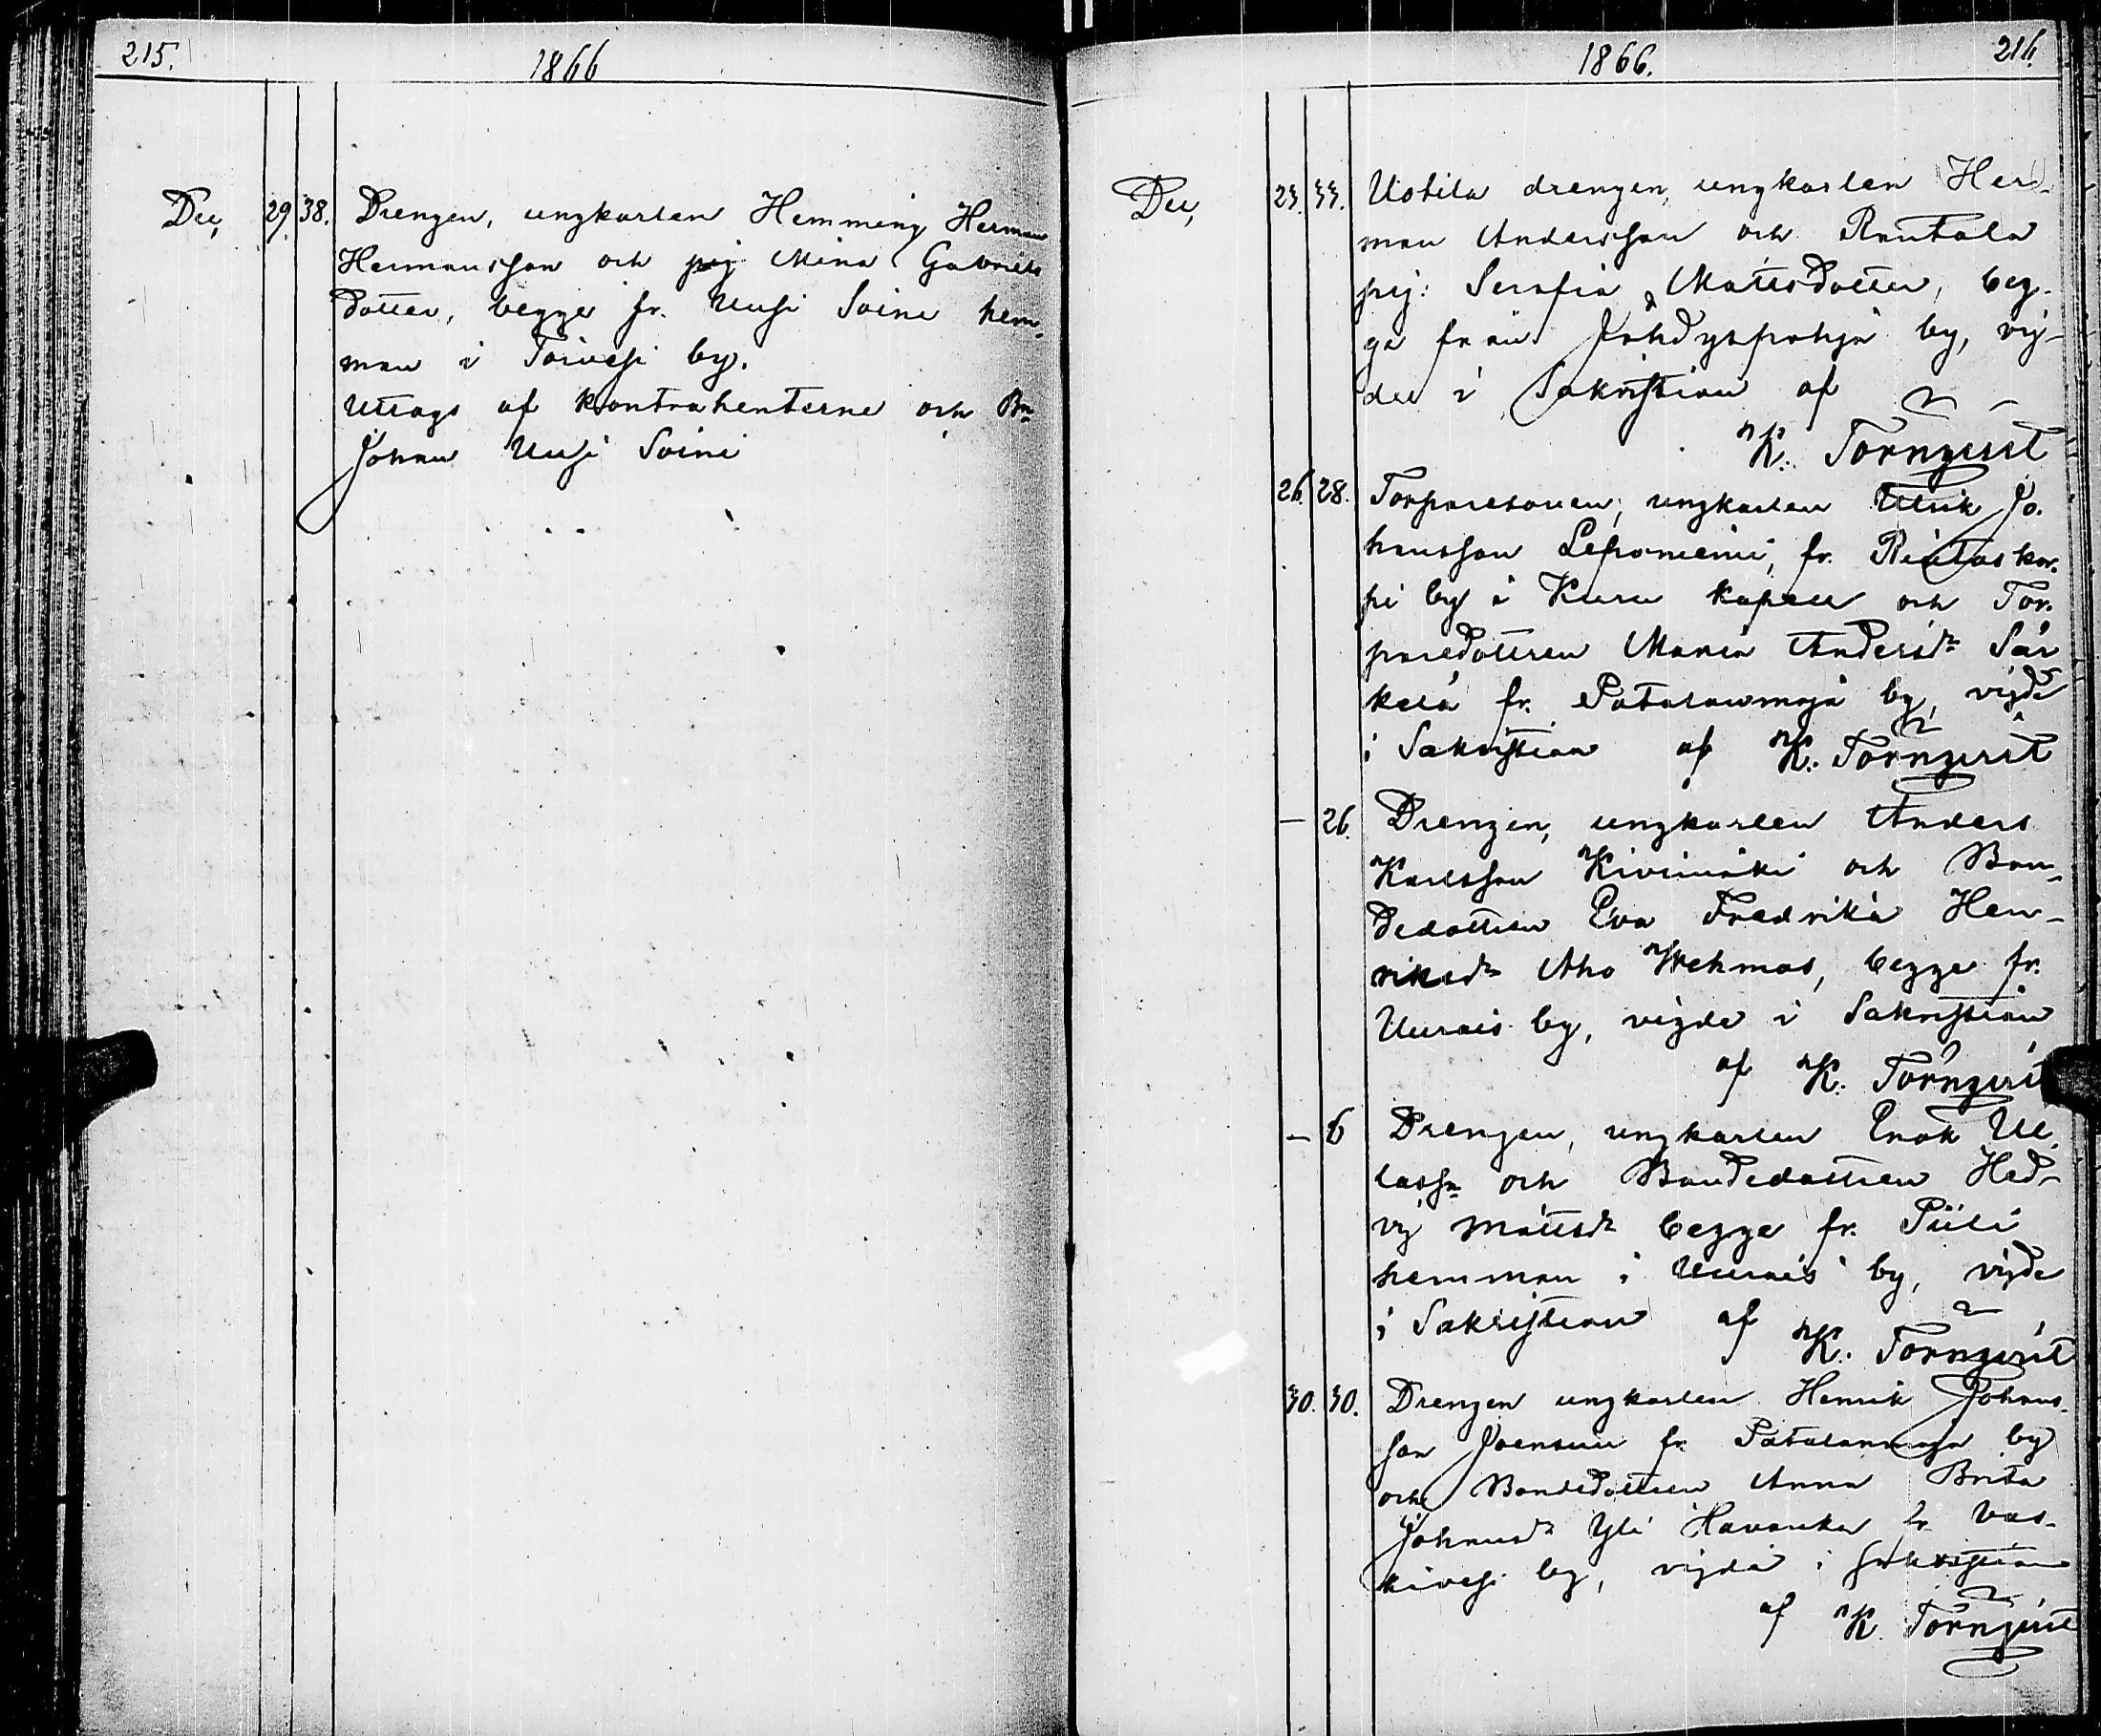 215. 1866
Dec, 29. 38. Drengen, ungkarlen Hemming Herman
Hermansson och pig Mina Gabriels
dotter, begge fr. Uusi Soini hem¬
man i Toivesi by.
Uttogs af kontrahenterne och Bn
Johan Uusi Soini
1866. 216.
Dec, 23. 33. Uotila drengen, ungkarlen Her¬
man Andersson och Rautala
pig: Serafia Mattsdotter, beg¬
ge från Jähdyspohja by, vig¬
de i Sakristian af
K. Törnqvist
26. 28. Torparesonen, ungkarlen Ulrik Jo¬
hansson Leponiemi, fr. Riutaskor¬
pi by i Kuru kapell och Tor¬
paredottren Maria Andersdr Sär
kelä fr. Patalanmaja by, vigde
i Sakristian af K. Törnqvist
— 26. Drengen, ungkarlen Anders
Karlsson Kivimäki och Bon¬
dedottren Eva Fredrika Hen¬
riksdr Aho Wehmas, begge fr.
Uurais by, vigde i Sakristian
af K. Törnqvist
— 6 Drengen, ungkarlen Enok Ul¬
lassn och Bondedottren Hed¬
vig Mattsdr begge fr. Piili
hemman i Uurais by, vigde
i Sakristian af
K. Törnqvist
30. 30. Drengen ungkarlen Henrik Johans¬
son Joensuu fr. Patalanmaja by
och Bondedottren Anna Brita
Johansdr Yli Havanka fr. Vas¬
kivesi by, vigde i Sakristian
af K. Törnqvist